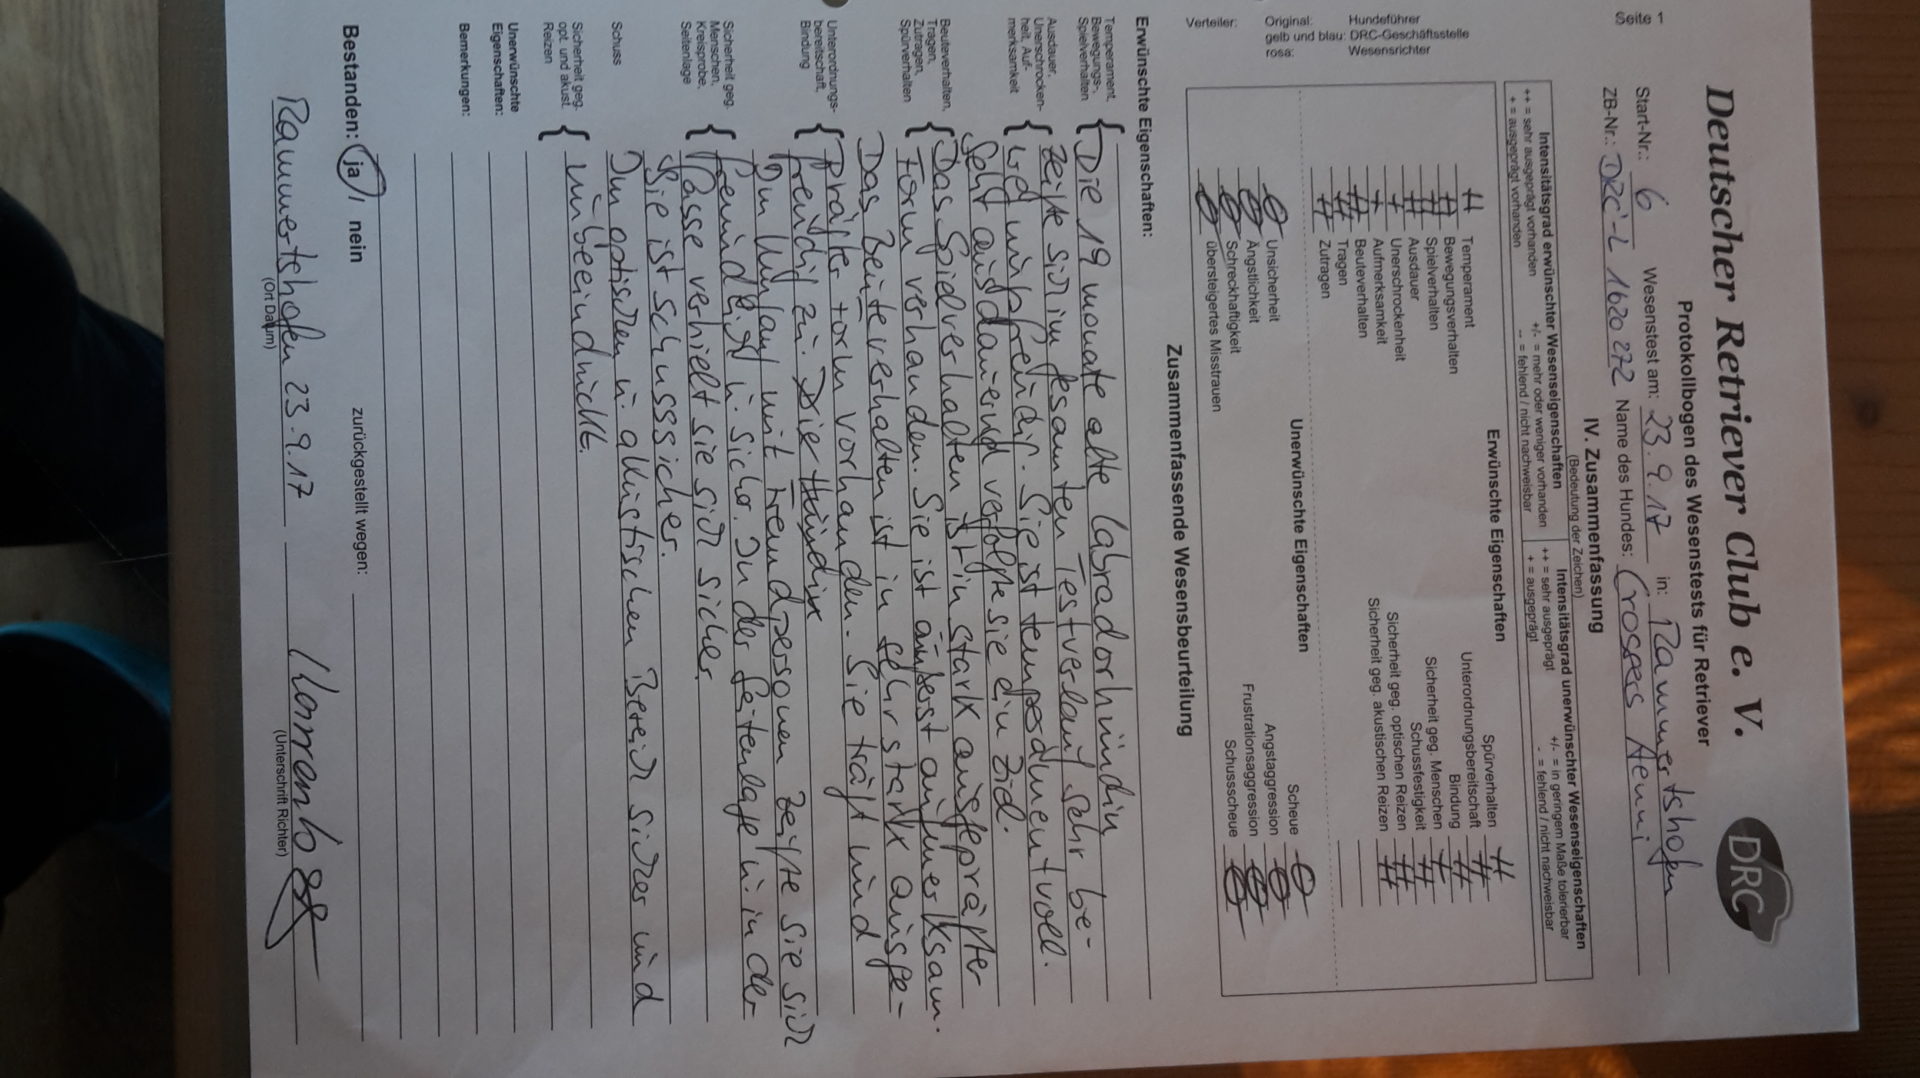 Seite 1
Deutscher Retriever Club e. V.
DRC
Protokollbogen des Wesenstests für Retriever
Start-Nr.: 6 Wesenstest am: 23.9.17 in: Rammertshofen
ZB-Nr.: DRC-L 1620272 Name des Hundes: Crospers Aenni
IV. Zusammenfassung
(Bedeutung der Zeichen)
Intensitätsgrad erwünschter Wesenseigenschaften Intensitätsgrad unerwünschter Wesenseigenschaften
++ = sehr ausgeprägt vorhanden +/- = mehr oder weniger vorhanden ++ = sehr ausgeprägt +/- = in geringem Maße tolerierbar
+ = ausgeprägt vorhanden - = fehlend / nicht nachweisbar + = ausgeprägt - = fehlend / nicht nachweisbar
Erwünschte Eigenschaften
++ Temperament Spürverhalten ++
++ Bewegungsverhalten Unterordnungsbereitschaft ++
++ Spielverhalten Bindung ++
++ Ausdauer Sicherheit geg. Menschen +
+ Unerschrockenheit Schussfestigkeit ++
+ Aufmerksamkeit Sicherheit geg. optischen Reizen ++
++ Beuteverhalten Sicherheit geg. akustischen Reizen ++
++ Tragen
++ Zutragen
Unerwünschte Eigenschaften
Unsicherheit Scheue
Ängstlichkeit Angstaggression
Schreckhaftigkeit Frustrationsaggression
übersteigertes Misstrauen Schussscheue
Verteiler: Original: Hundeführer
gelb und blau: DRC-Geschäftsstelle
rosa: Wesensrichter
Zusammenfassende Wesensbeurteilung
Erwünschte Eigenschaften:
Temperament, Bewegungs-, Spielverhalten
Die 19 monate alte Labradorhündin
zeigte sich im gesamten Testverlauf sehr be-
Ausdauer, Unerschrockenheit, Aufmerksamkeit
weg- u. spielfreudig. Sie ist temperamentvoll.
Sehr ausdauernd verfolgte sie ein Ziel.
Beuteverhalten, Tragen, Zutragen, Spürverhalten
Das Spielverhalten ist in stark ausgeprägter
Form vorhanden. Sie ist äußerst aufmerksam.
Das Beuteverhalten ist in sehr stark ausge-
Unterordnungsbereitschaft, Bindung
prägter Form vorhanden. Sie trägt und
freudig zu. Die Hündin zeigte sie sich
Sicherheit geg. Menschen, Kreisprobe, Seitenlage
Im Umlauf mit Fremdpersonen
freundl. u. sicher. In der Seitenlage u. in der
Gasse verhielt sie sich sicher.
Schuss
Sie ist schusssicher.
Im optischen u. akustischen Bereich sicher und
Sicherheit geg. opt. und akust. Reizen
unbeeindruckt.
Unerwünschte Eigenschaften:
Bemerkungen:
Bestanden: ja / nein zurückgestellt wegen:
Rammertshofen 23.9.17
(Ort Datum) (Unterschrift Richter)